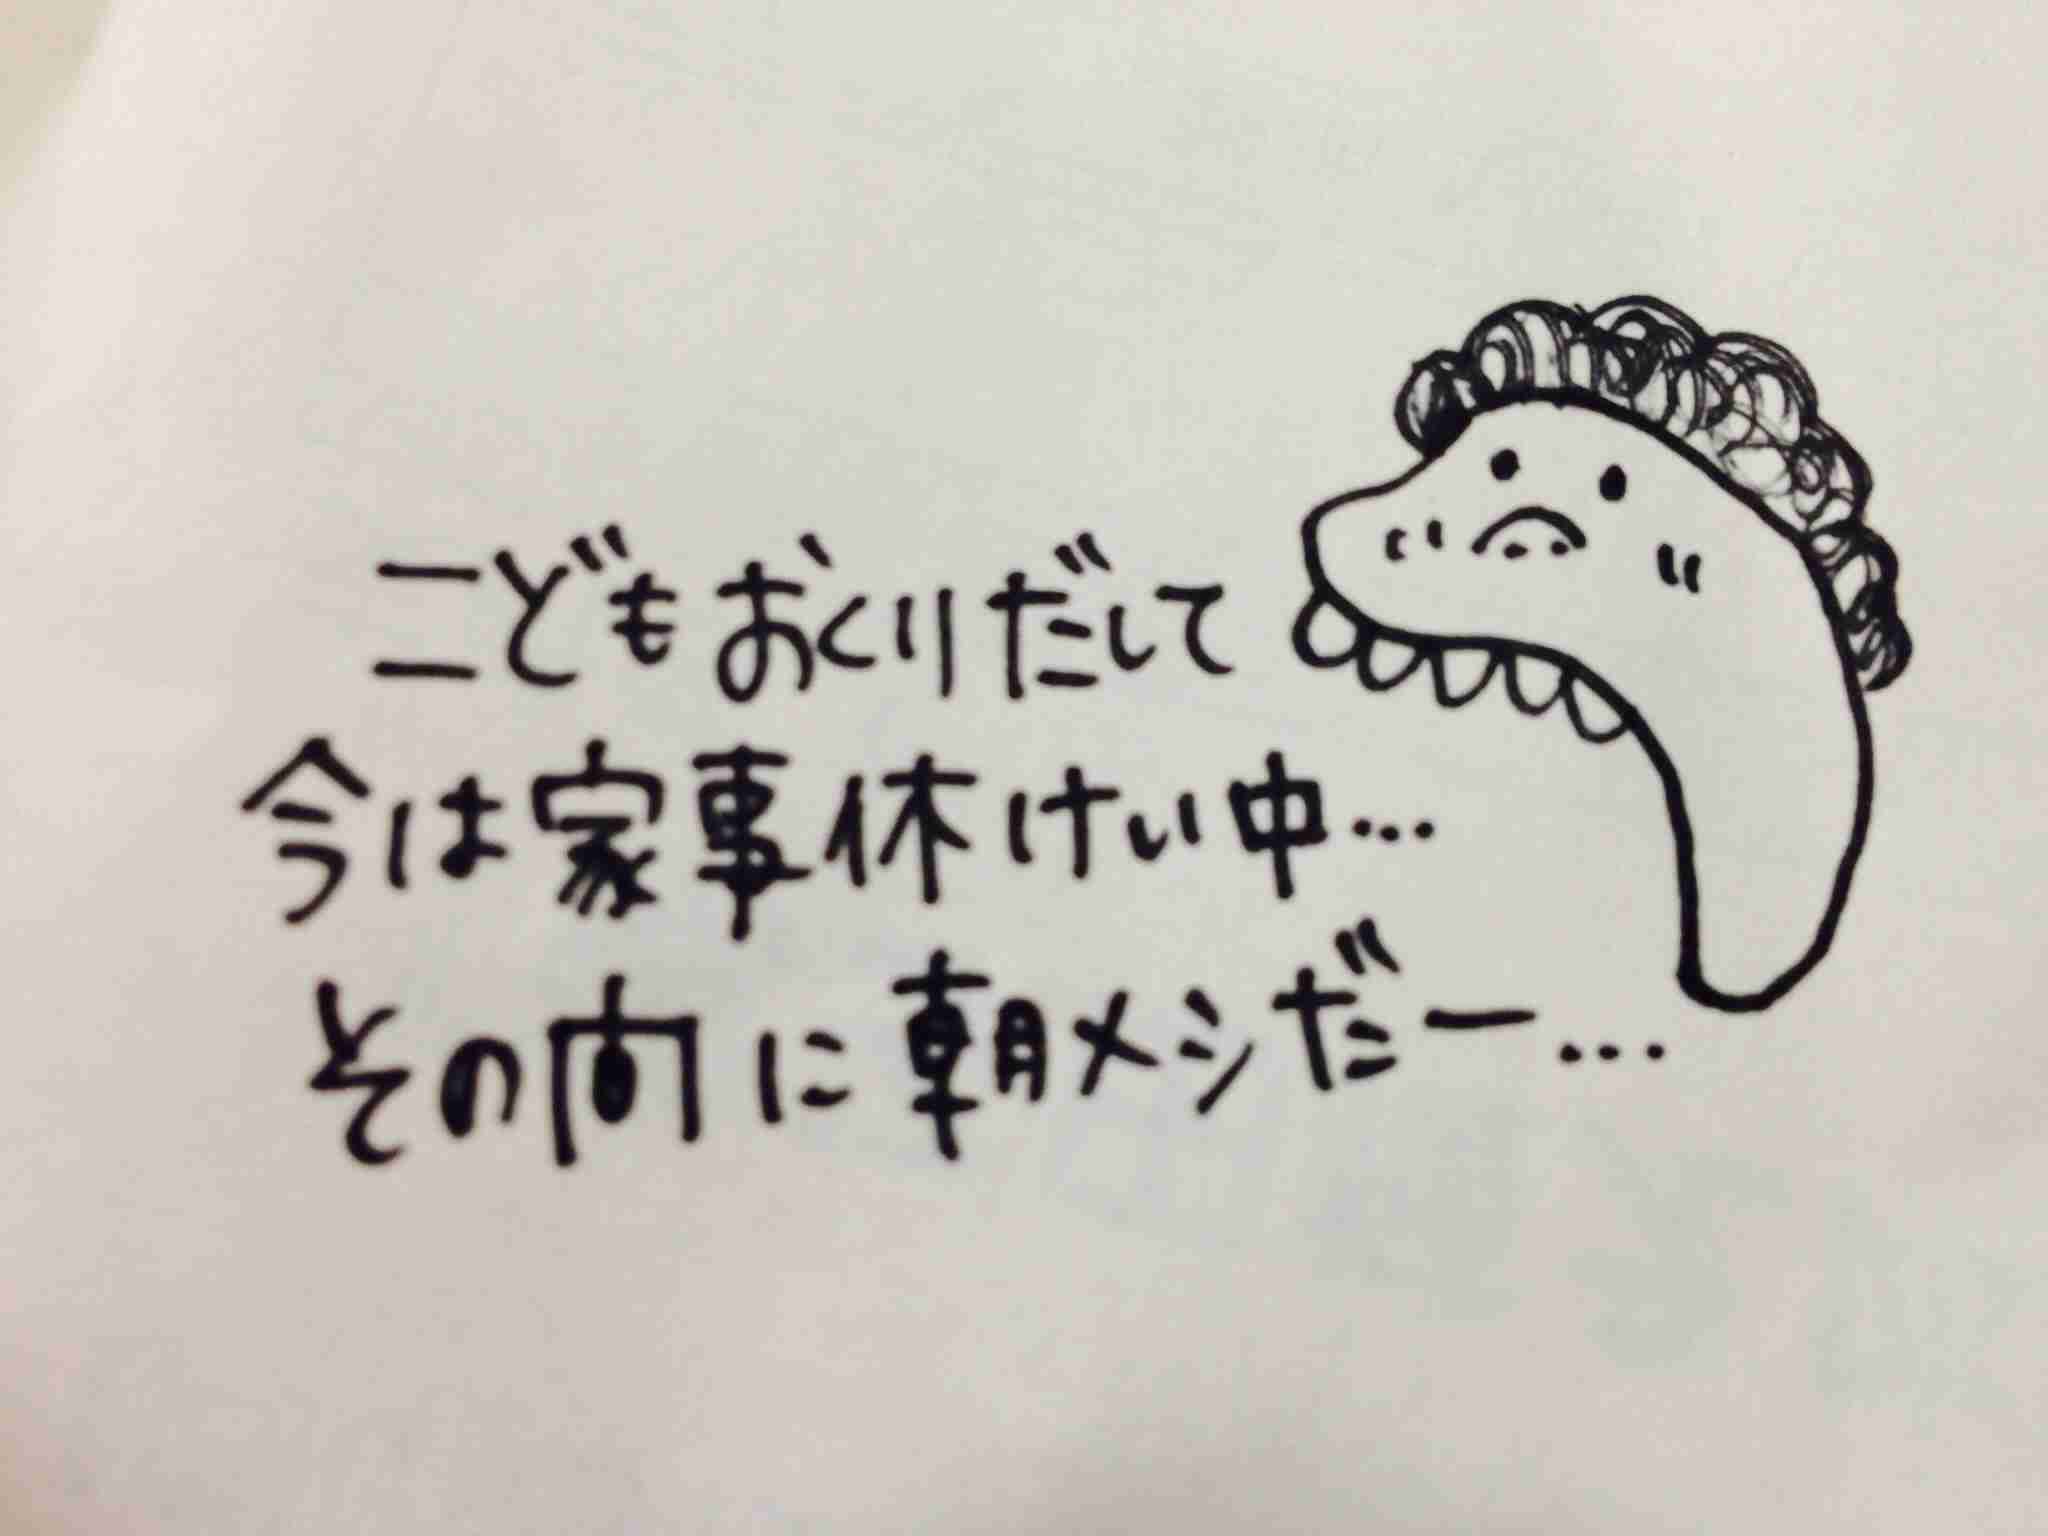 こどもおくりだして
今は家事休けい中…
その間に朝メシだー…